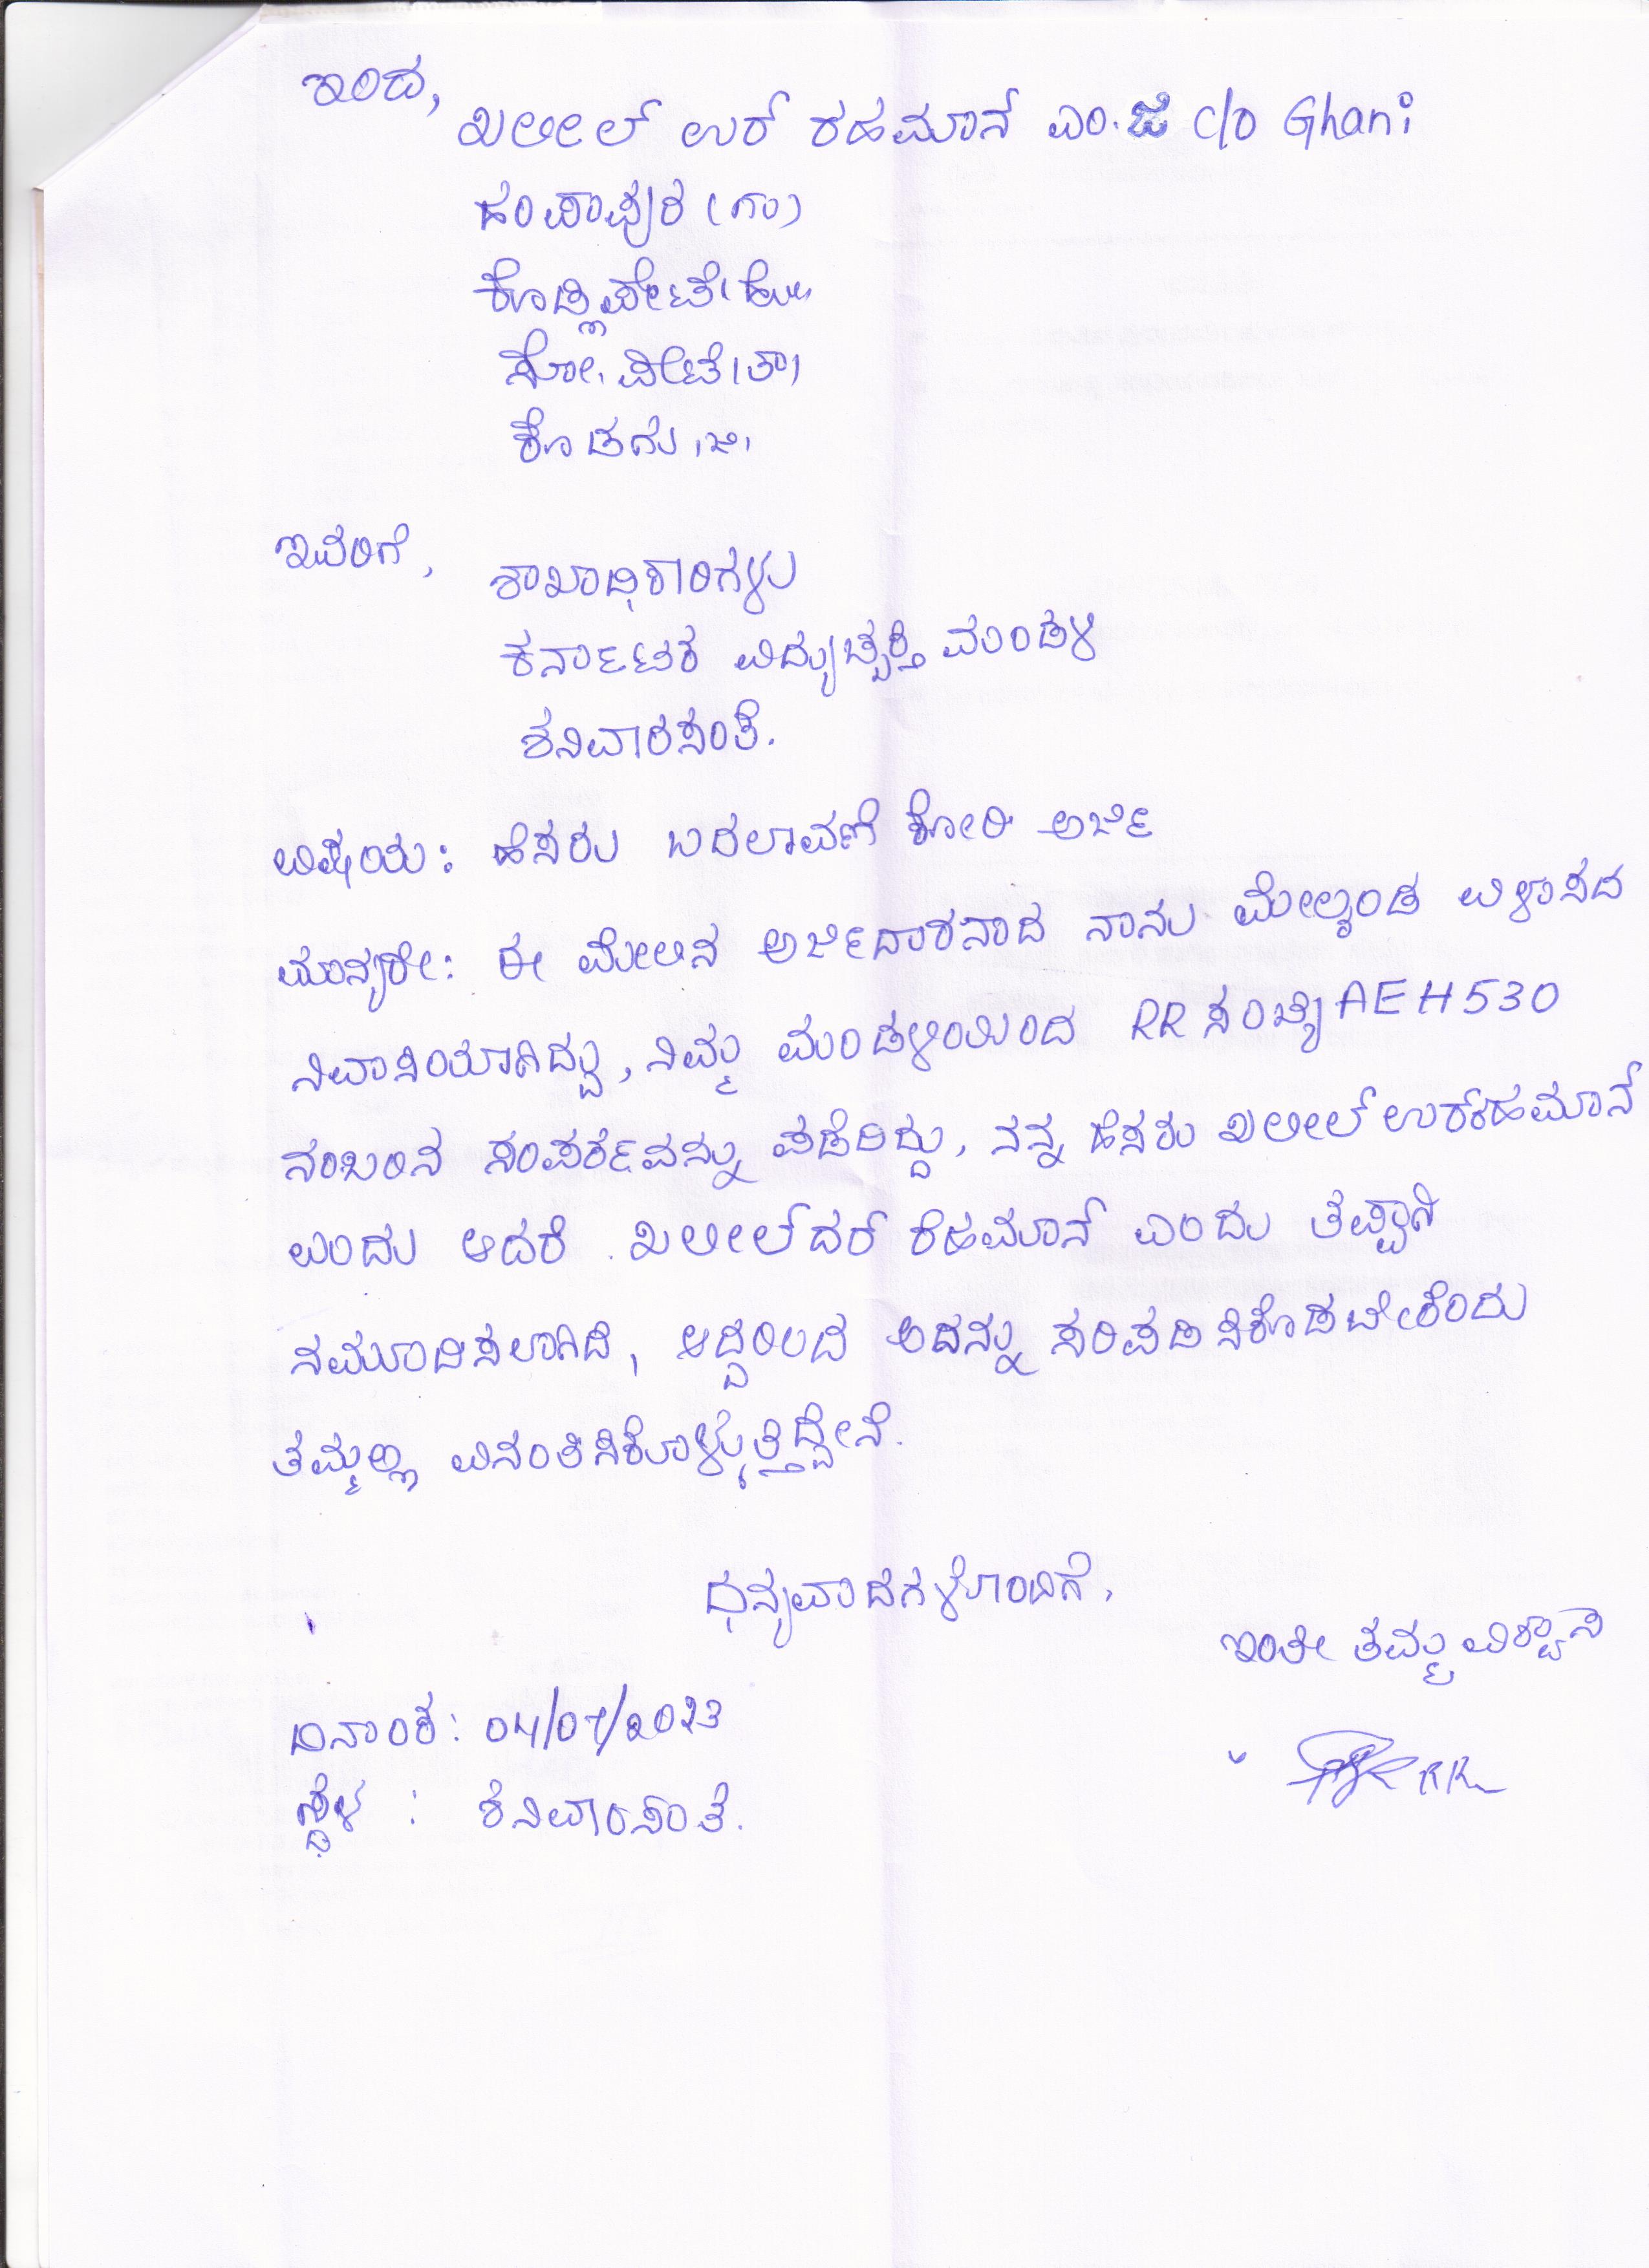 ಇಂದ,
ಖಲೀಲ್ ಉರ್ ರಹಮಾನ್ ಎಂ.ಜಿ c/o Ghani
ಹಂಪಾಪುರ (ಗ್ರಾ)
ಕೊಡ್ಲಿಪೇಟೆ ಹೋ
ಸೋ. ಪೇಟೆ ತಾ
ಕೊಡಗು ಜಿ
ಇವರಿಗೆ,
ಶಾಖಾಧಿಕಾರಿಗಳು
ಕರ್ನಾಟಕ ವಿದ್ಯುಚ್ಛಕ್ತಿ ಮಂಡಳಿ
ಶನಿವಾರಸಂತೆ.
ವಿಷಯ: ಹೆಸರು ಬದಲಾವಣೆ ಕೋರಿ ಅರ್ಜಿ
ಮಾನ್ಯರೇ: ಈ ಮೇಲಿನ ಅರ್ಜಿದಾರನಾದ ನಾನು ಮೇಲ್ಕಂಡ ವಿಳಾಸದ
ನಿವಾಸಿಯಾಗಿದ್ದು, ನಿಮ್ಮ ಮಂಡಳಿಯಿಂದ RR ಸಂಖ್ಯೆ AEH530
ನಂಬರಿನ ಸಂಪರ್ಕವನ್ನು ಪಡೆದಿದ್ದು, ನನ್ನ ಹೆಸರು ಖಲೀಲ್ ಉರ್ ರಹಮಾನ್
ಎಂದು ಆದರೆ ಖಲೀಲ್ ದರ್ ರೆಹಮಾನ್ ಎಂದು ತಪ್ಪಾಗಿ
ನಮೂದಿಸಲಾಗಿದೆ, ಆದ್ದರಿಂದ ಅದನ್ನು ಸರಿಪಡಿಸಿಕೊಡಬೇಕೆಂದು
ತಮ್ಮಲ್ಲಿ ವಿನಂತಿಸಿಕೊಳ್ಳುತ್ತಿದ್ದೇನೆ.
ಧನ್ಯವಾದಗಳೊಂದಿಗೆ,
ಇಂತೀ ತಮ್ಮ ವಿಶ್ವಾಸಿ
ದಿನಾಂಕ: 04/07/2023
ಸ್ಥಳ : ಶನಿವಾರಸಂತೆ.